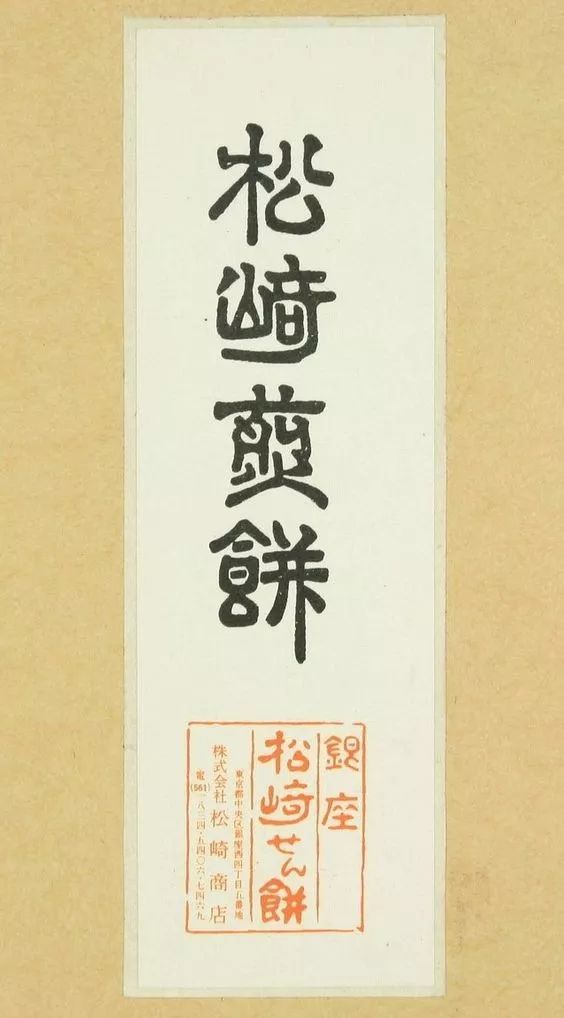 松﨑煎餅
銀座
松﨑せん餅
東京都中央区銀座西四丁目五番地
株式会社 松崎商店
電(561)一八三四・五四〇六・七四六九